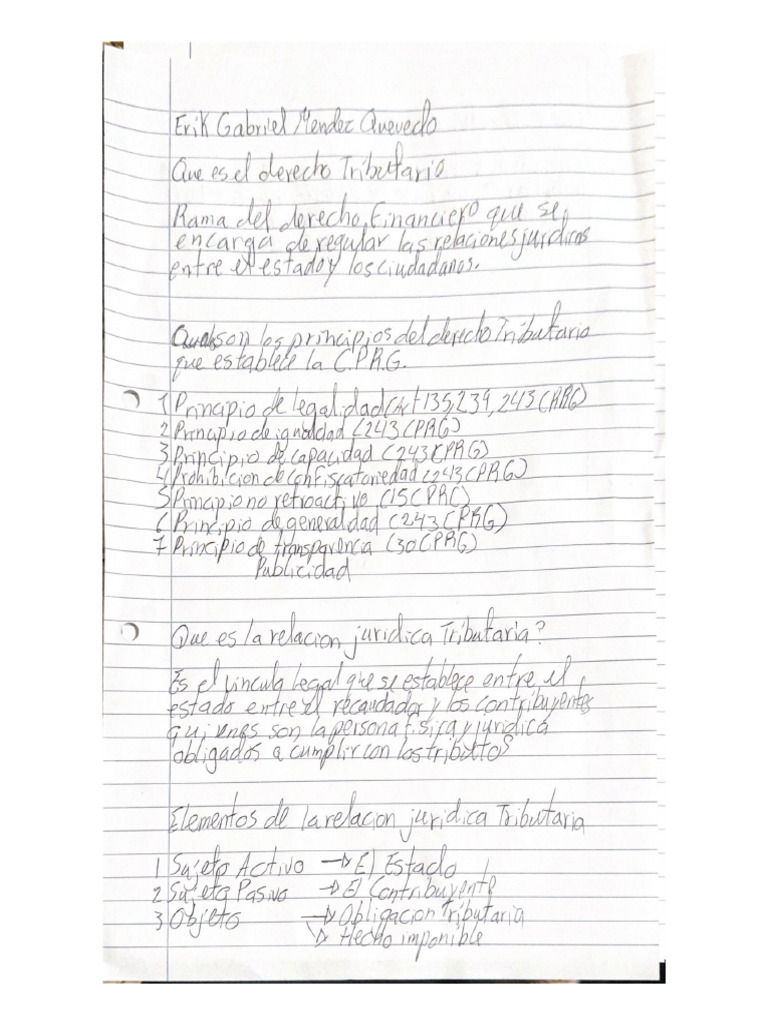 Erik Gabriel Mendez Quevedo
Que es el derecho Tributario
Rama del derecho Financiero que se
encarga de regular las relaciones juridicas
entre el estado y los ciudadanos.
Cuales son los principios del derecho Tributario
que establece la C.P.R.G.
1 Principio de legalidad (Art 135, 239, 243 CPRG)
2 Principio de igualdad (243 CPRG)
3 Principio de capacidad (243 CPRG)
4 Prohibicion de confiscatoriedad (243 CPRG)
5 Principio no retroactivo (15 CPRG)
6 Principio de generaldad (243 CPRG)
7 Principio de transparencia (30 CPRG)
Publicidad
Que es la relacion juridica Tributaria?
Es el vinculo legal que se establece entre el
estado entre el recaudador y los contribuyentes
quienes son la persona fisica y juridica
obligados a cumplir con los tributos
Elementos de la relacion juridica Tributaria
1 Sujeto Activo → El Estado
2 Sujeto Pasivo → El Contribuyente
3 Objeto → Obligacion Tributaria
→ Hecho imponible